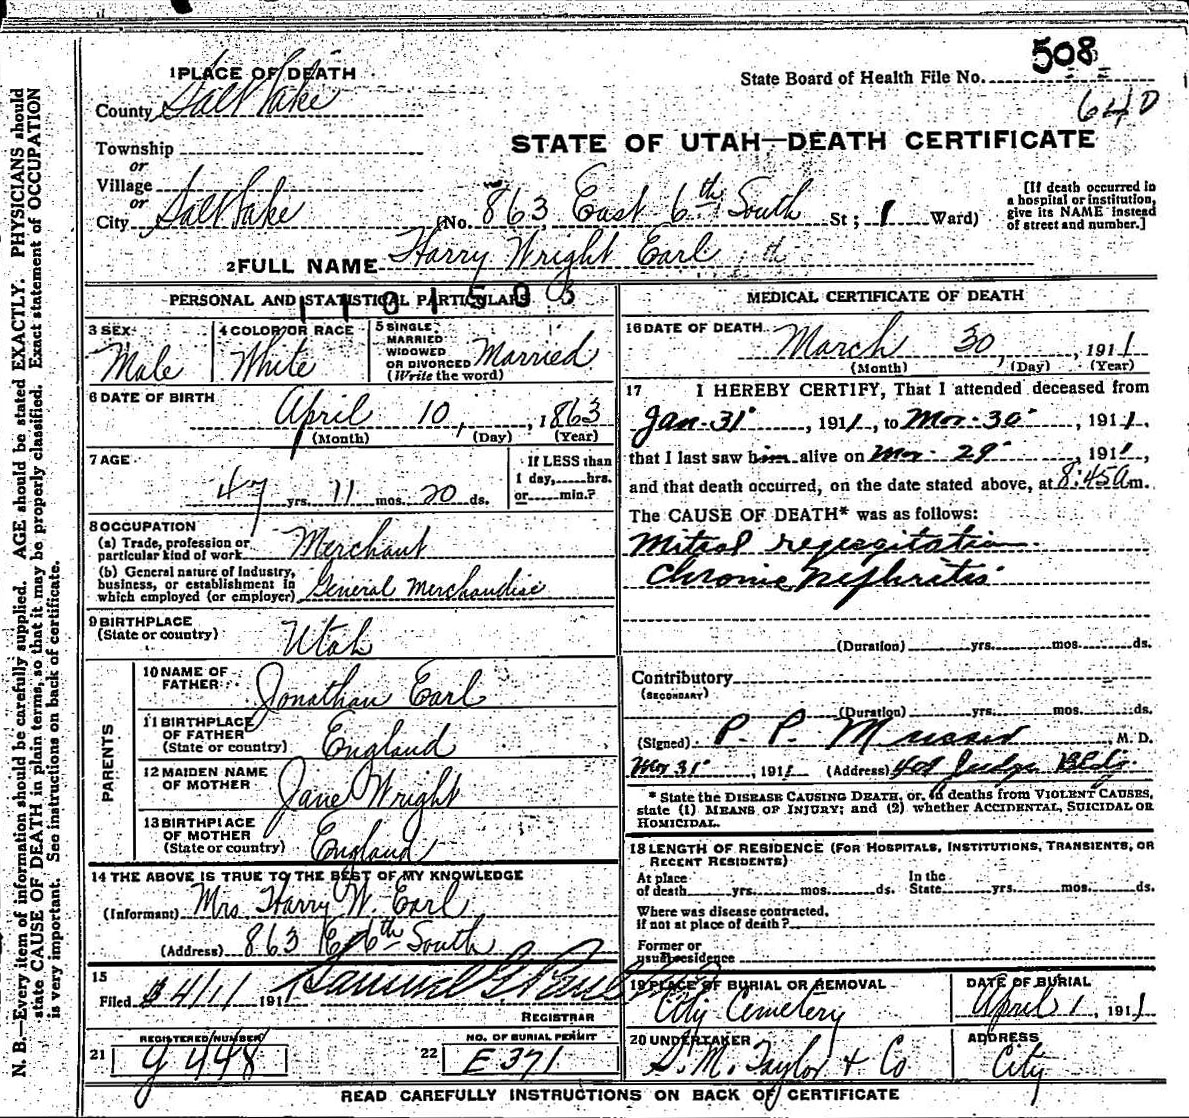 508
State Board of Health File No.
64D
1 PLACE OF DEATH
County Salt Lake
STATE OF UTAH—DEATH CERTIFICATE
Township
or
Village
or
City Salt Lake (No. 863 East 6th South St; 1 Ward)
[If death occurred in a hospital or institution, give its NAME instead of street and number.]
2 FULL NAME Harry Wright Earl
PERSONAL AND STATISTICAL PARTICULARS
3 SEX Male
4 COLOR OR RACE White
5 SINGLE MARRIED WIDOWED OR DIVORCED (Write the word) Married
6 DATE OF BIRTH April 10, 1863
(Month) (Day) (Year)
7 AGE
47 yrs. 11 mos. 20 ds.
If LESS than
1 day,......hrs.
or......min.?
8 OCCUPATION
(a) Trade, profession or particular kind of work Merchant
(b) General nature of Industry, business, or establishment in which employed (or employer) General Merchandise
9 BIRTHPLACE
(State or country) Utah
PARENTS
10 NAME OF FATHER Jonathan Earl
11 BIRTHPLACE OF FATHER (State or country) England
12 MAIDEN NAME OF MOTHER Jane Wright
13 BIRTHPLACE OF MOTHER (State or country) England
14 THE ABOVE IS TRUE TO THE BEST OF MY KNOWLEDGE
(Informant) Mrs Harry W. Earl
(Address) 863 E 6th South
15
Filed 4/1 1911
REGISTRAR
REGISTERED NUMBER
21 448
NO. OF BURIAL PERMIT
22 E 371
MEDICAL CERTIFICATE OF DEATH
16 DATE OF DEATH March 30, 1911
(Month) (Day) (Year)
17 I HEREBY CERTIFY, That I attended deceased from
Jan. 31, 1911, to Mar. 30, 1911,
that I last saw him alive on Mar. 29, 1911,
and that death occurred, on the date stated above, at 8:45 a m.
The CAUSE OF DEATH* was as follows:
Mitral regurgitation
Chronic nephritis
(Duration) yrs. mos. ds.
Contributory
(SECONDARY)
(Duration) yrs. mos. ds.
(Signed) P. P. Musser M. D.
Mar 31, 1911 (Address) 408 Judge Bldg.
* State the DISEASE CAUSING DEATH, or, in deaths from VIOLENT CAUSES,
state (1) MEANS OF INJURY; and (2) whether ACCIDENTAL, SUICIDAL OR
HOMICIDAL.
18 LENGTH OF RESIDENCE (FOR HOSPITALS, INSTITUTIONS, TRANSIENTS, OR
RECENT RESIDENTS)
At place of death yrs. mos. ds. In the State yrs. mos. ds.
Where was disease contracted,
if not at place of death?
Former or
usual residence
19 PLACE OF BURIAL OR REMOVAL
City Cemetery
DATE OF BURIAL
April 1, 1911
20 UNDERTAKER
S. M. Taylor & Co
ADDRESS
City
READ CAREFULLY INSTRUCTIONS ON BACK OF CERTIFICATE
N. B.—Every item of information should be carefully supplied. AGE should be stated EXACTLY. PHYSICIANS should
state CAUSE OF DEATH in plain terms, so that it may be properly classified. Exact statement of OCCUPATION
is very important. See instructions on back of certificate.